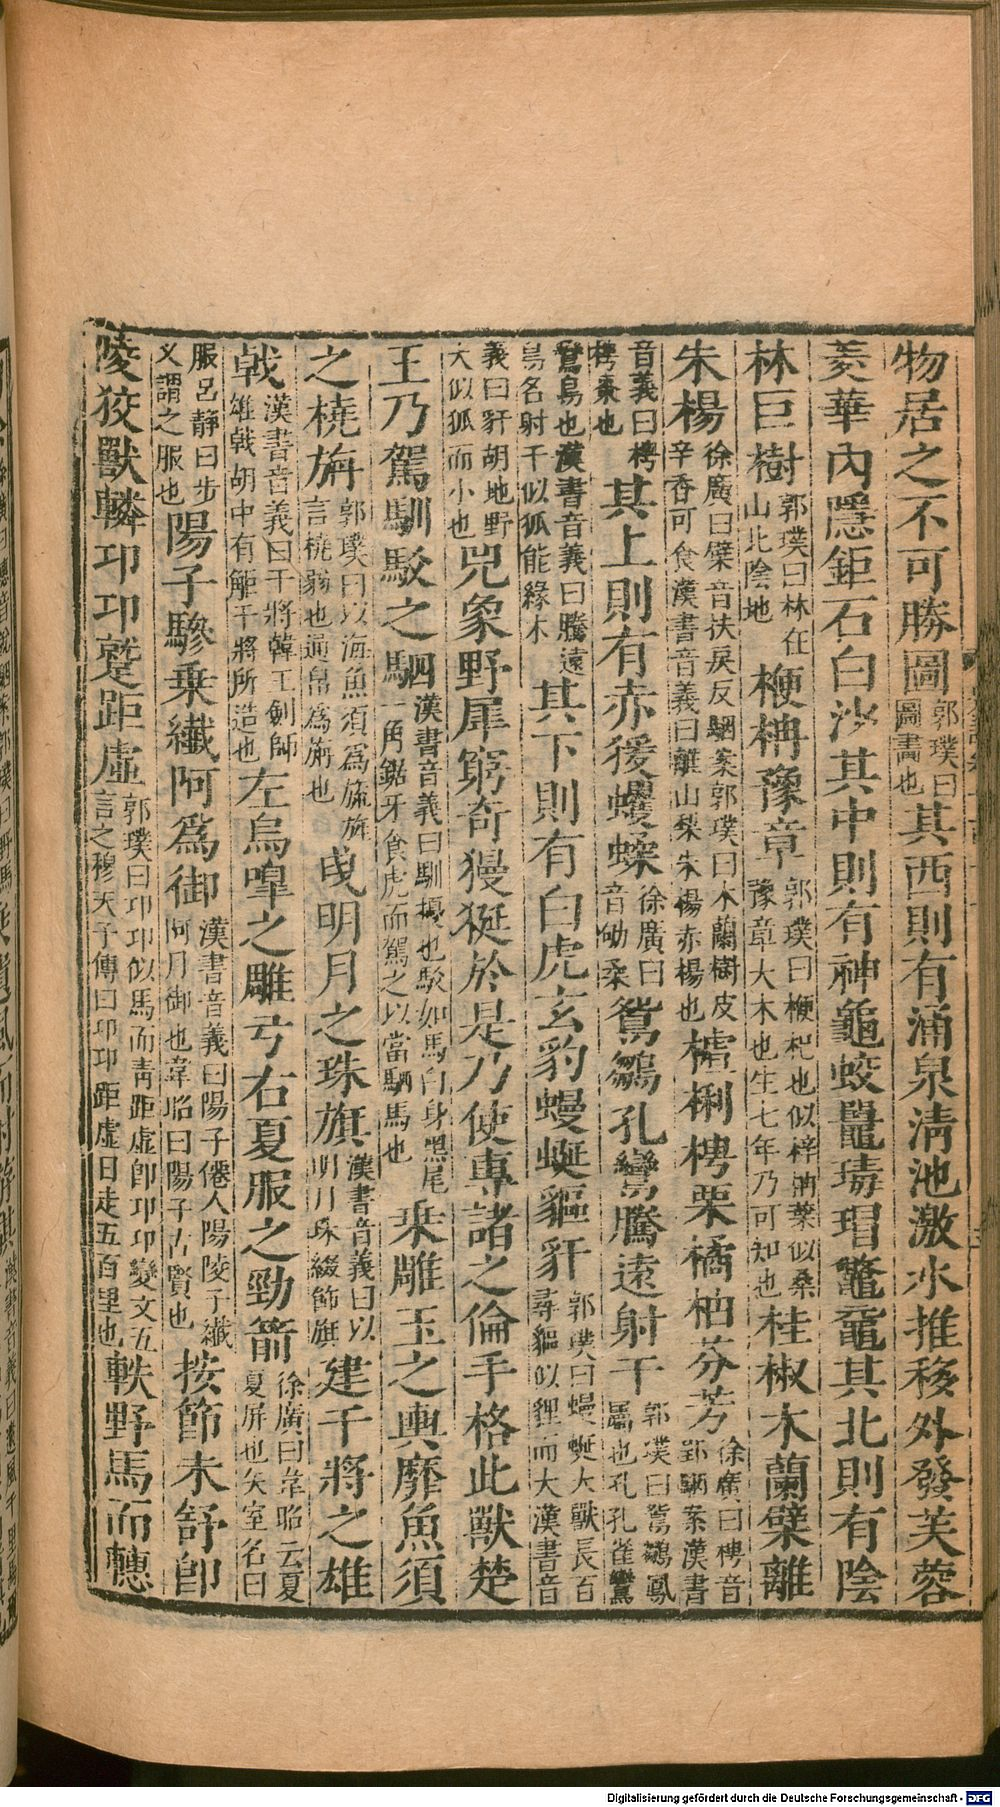 物居之不可勝圖郭璞曰圖畫也其西則有涌泉淸池激水推移外發芙蓉
菱華內隱鉅石白沙其中則有神龜蛟鼉瑇瑁鼈黿其北則有陰
林巨樹郭璞曰林在山北陰地楩柟豫章郭璞曰楩杞也似梓柟葉似桑豫章大木也生七年乃可知也桂椒木蘭檗離
朱楊徐廣曰檗音扶戾反駰案郭璞曰木蘭樹皮辛香可食漢書音義曰離山棃朱楊赤楊也樝梸梬栗橘柚芬芳徐廣曰梬音郢駰案漢書
音義曰梬梬棗也其上則有赤猨蠷蝚徐廣曰音劬柔鵷鶵孔鸞騰遠射干郭璞曰鵷鶵鳳屬也孔孔雀鸞
鸞鳥也漢書音義曰騰遠鳥名射干似狐能緣木其下則有白虎玄豹蟃蜒貙豻郭璞曰蟃蜒大獸長百尋貙似貍而大漢書音
義曰豻胡地野犬似狐而小也兕象野犀窮奇獌狿於是乃使專諸之倫手格此獸楚
王乃駕馴駮之駟漢書音義曰馴擾也駮如馬白身黑尾一角鋸牙食虎而駕之以當駟馬也乗雕玉之輿靡魚須
之橈旃郭璞曰以海魚須爲旒旃言橈弱也通帛爲旃也曵明月之珠旗漢書音義曰以明月珠綴飾旗建干將之雄
戟漢書音義曰干將韓王劍師雄戟胡中有觟干將所造也左烏嘷之雕弓右夏服之勁箭徐廣曰韋昭云夏夏羿也矢室名曰
服呂靜曰步叉謂之服也陽子驂乗纖阿爲御漢書音義曰陽子僊人陽陵子纖阿月御也韋昭曰陽子古賢也按節未舒卽
陵狡獸轔卭卭蹵距虛郭璞曰卭卭似馬而靑距虛卽卭卭變文互言之穆天子傳曰卭卭距虛日走五百里也軼野馬而轊
Digitalisierung gefördert durch die Deutsche Forschungsgemeinschaft - DFG